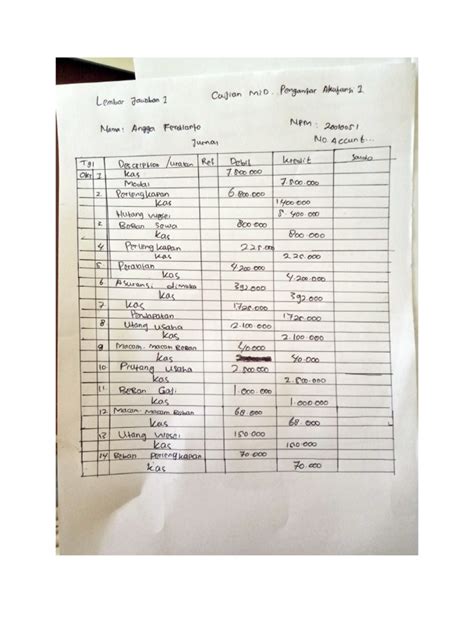 Lembar Jawaban 1 Cajian MID. Pengantar Akutansi 1
Nama: Angga Ferdianto NPM: 2001005 1
Jurnal No. Accunt...
Tgl Description / uraian Ref Debit kredit Saldo
Okt 1 kas 7.800.000
Modal 7.800.000
2 Perlengkapan 6.800.000
kas 1400.000
Hutang wesel 5.400.000
2 Beban Sewa 800.000
kas 800.000
4 Perlengkapan 220.000
kas 220.000
5 Peralatan 4.200.000
kas 4.200.000
6 Asuransi dimuka 392.000
kas 392.000
7 kas 1720.000
Pendapatan 1720.000
8 Utang usaha 2.100.000
kas 2.100.000
9 Macam-macam Beban 40.000
kas 40.000
10 Piutang usaha 2.800.000
kas 2.800.000
11 Beban Gaji 1.000.000
kas 1.000.000
12 Macam-Macam Beban 68.000
kas 68.000
13 Utang wesel 150.000
kas 150.000
14 Beban Perlengkapan 70.000
kas 70.000